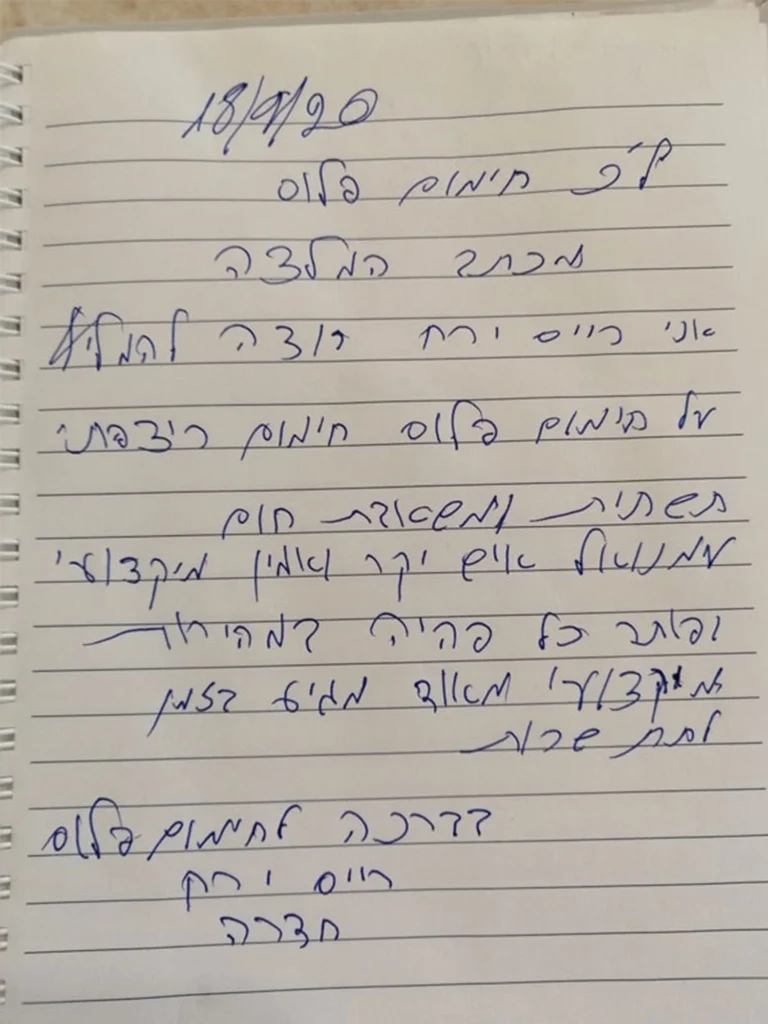 18/9/20
לכ' חימום פלוס
מכתב המלצה
אני חיים ירח רוצה להמליץ
על חימום פלוס חימום ריצפתי
תשתית ומשאבת חום
עמנואל איש יקר ואמין מיקצועי
ופותר כל בהיה במהירות
מיקצועי מאוד מגיע בזמן
לתת שרות
בברכה לחימום פלוס
חיים ירח
חדרה